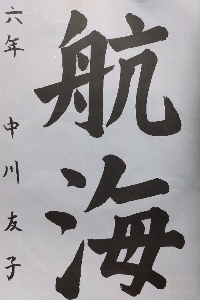 航海
六年 中川友子